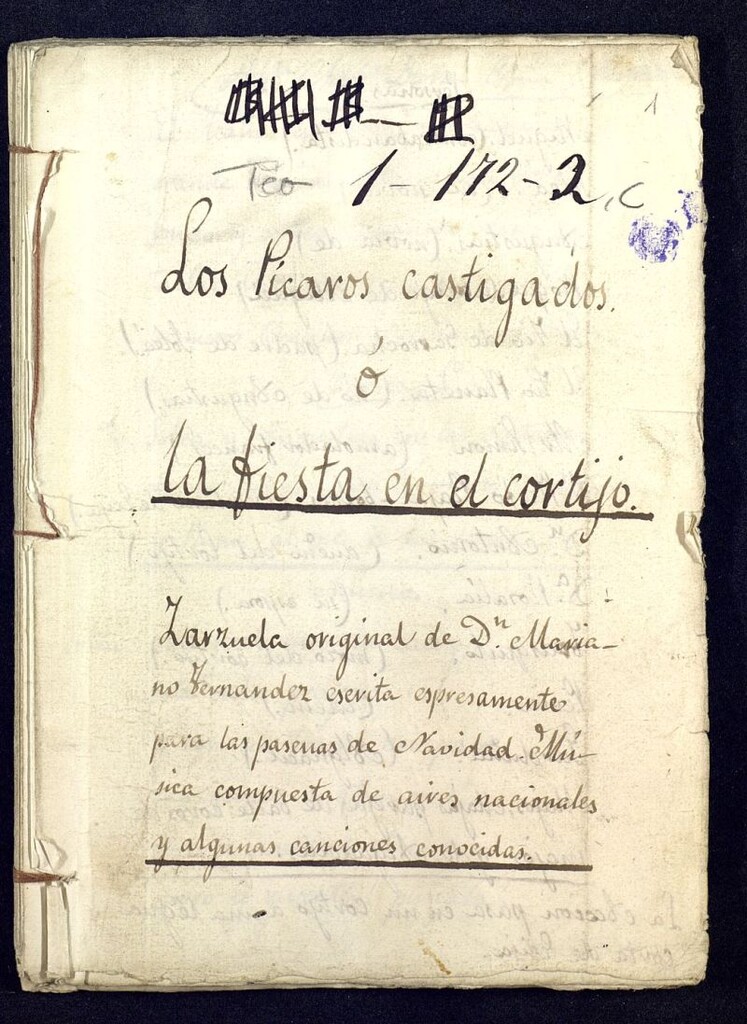 1
Teo 1-172-2, C
Los Pícaros castigados.
ó
la fiesta en el cortijo.
Zarzuela original de Dn. Maria-
no Fernandez escrita espresamente
para las pascuas de Navidad. Mú-
sica compuesta de aires nacionales
y algunas canciones conocidas.